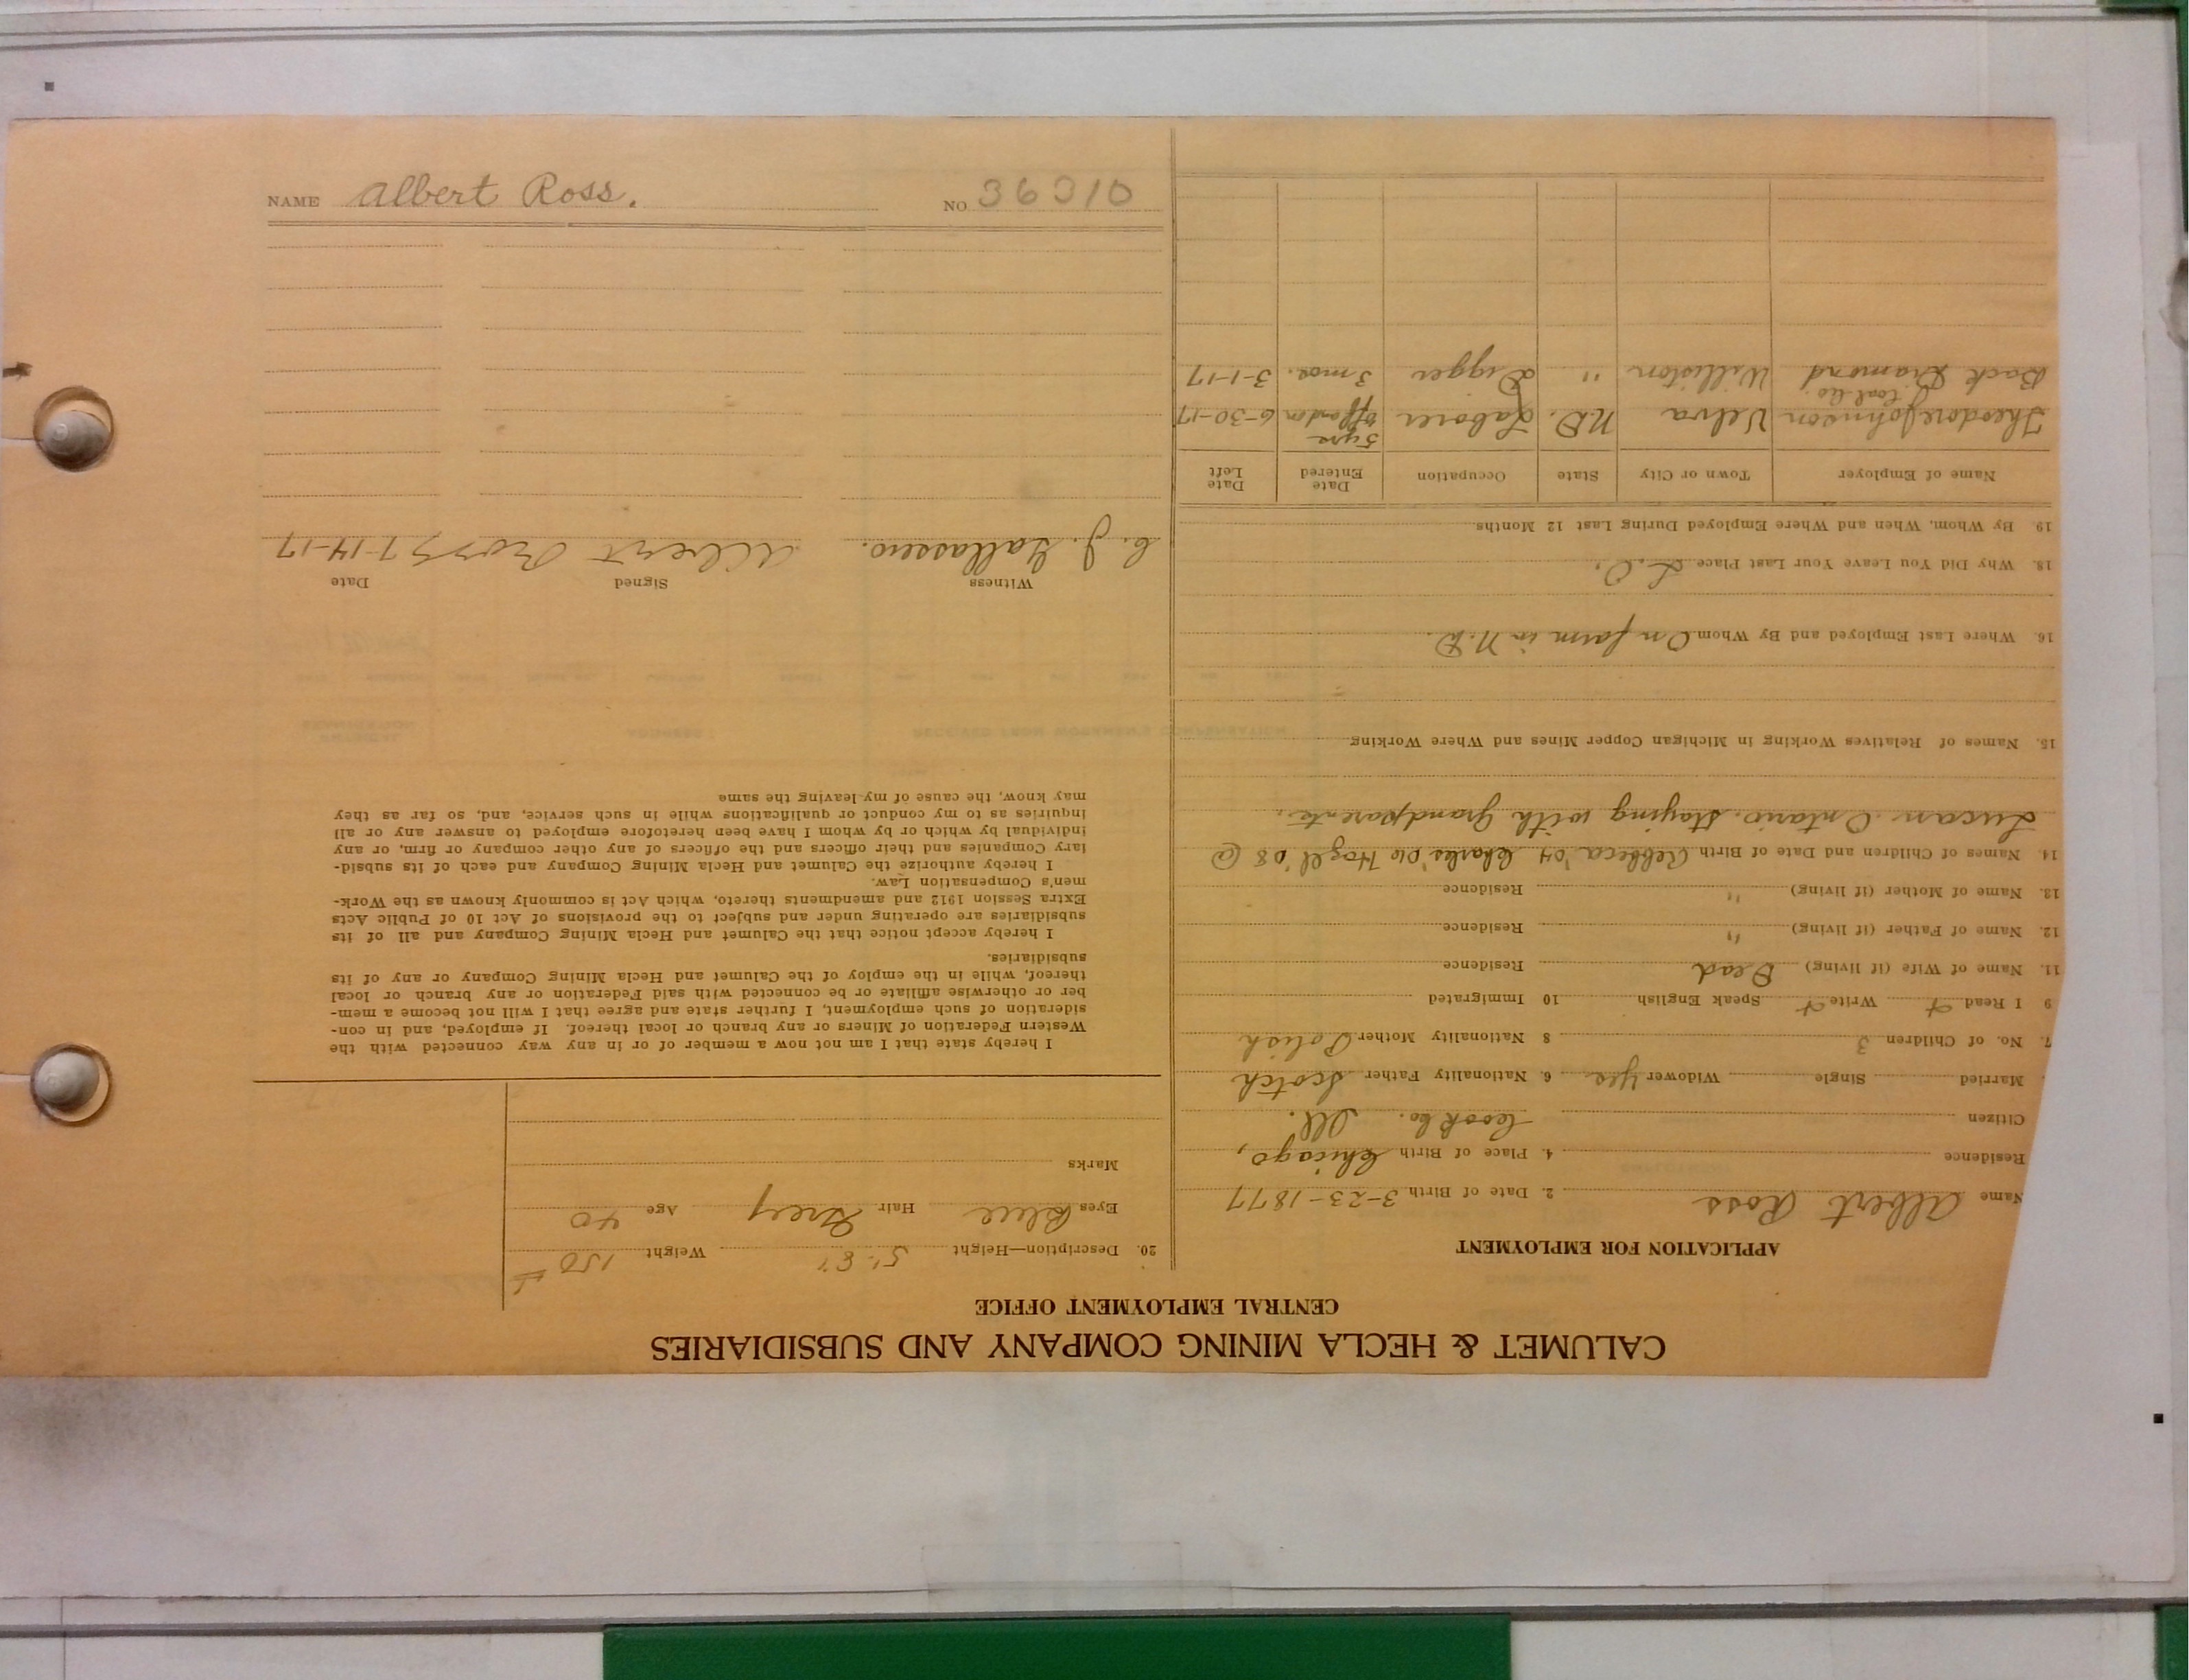 CALUMET & HECLA MINING COMPANY AND SUBSIDIARIES
CENTRAL EMPLOYMENT OFFICE
APPLICATION FOR EMPLOYMENT
Name Albert Ross 2. Date of Birth 3-23-1877
Residence 4. Place of Birth Chicago,
Citizen Cook Co. Ill.
Married Single Widower Yes 6. Nationality Father Scotch
7. No. of Children 3 8 Nationality Mother Polish
9 I Read Write Speak English 10 Immigrated
11. Name of Wife (if living) Dead Residence
12. Name of Father (if living) " Residence
13. Name of Mother (if living) " Residence
14. Names of Children and Date of Birth Rebbeca '04 Charles '06 Hazel '08 @
Lucan Ontario. Staying with Grandparents.
15. Names of Relatives Working in Michigan Copper Mines and Where Working
16. Where Last Employed and By Whom On farm in N.D.
18. Why Did You Leave Your Last Place
19. By Whom, When and Where Employed During Last 12 Months
Name of Employer Town or City State Occupation Date Entered Date Left
Theodore Johnson Velva N.D. Laborer 5 yrs off and on 6-30-17
Back Diamond Coal Co. Williston " Digger 3 mos. 3-1-17
20. Description—Height 5' 8" Weight 150 #
Eyes Blue Hair Grey Age 40
Marks
I hereby state that I am not now a member of or in any way connected with the
Western Federation of Miners or any branch or local thereof. If employed, and in con-
sideration of such employment, I further state and agree that I will not become a mem-
ber or otherwise affiliate or be connected with said Federation or any branch or local
thereof, while in the employ of the Calumet and Hecla Mining Company or any of its
subsidiaries.
I hereby accept notice that the Calumet and Hecla Mining Company and all of its
subsidiaries are operating under and subject to the provisions of Act 10 of Public Acts
Extra Session 1912 and amendments thereto, which Act is commonly known as the Work-
men's Compensation Law.
I hereby authorize the Calumet and Hecla Mining Company and each of its subsid-
iary Companies and their officers and the officers of any other company or firm, or any
individual by which or by whom I have been heretofore employed to answer any or all
inquiries as to my conduct or qualifications while in such service, and, so far as they
may know, the cause of my leaving the same
Witness Signed Date
C. J. Albert Ross 7-14-17
NAME Albert Ross. NO 36310